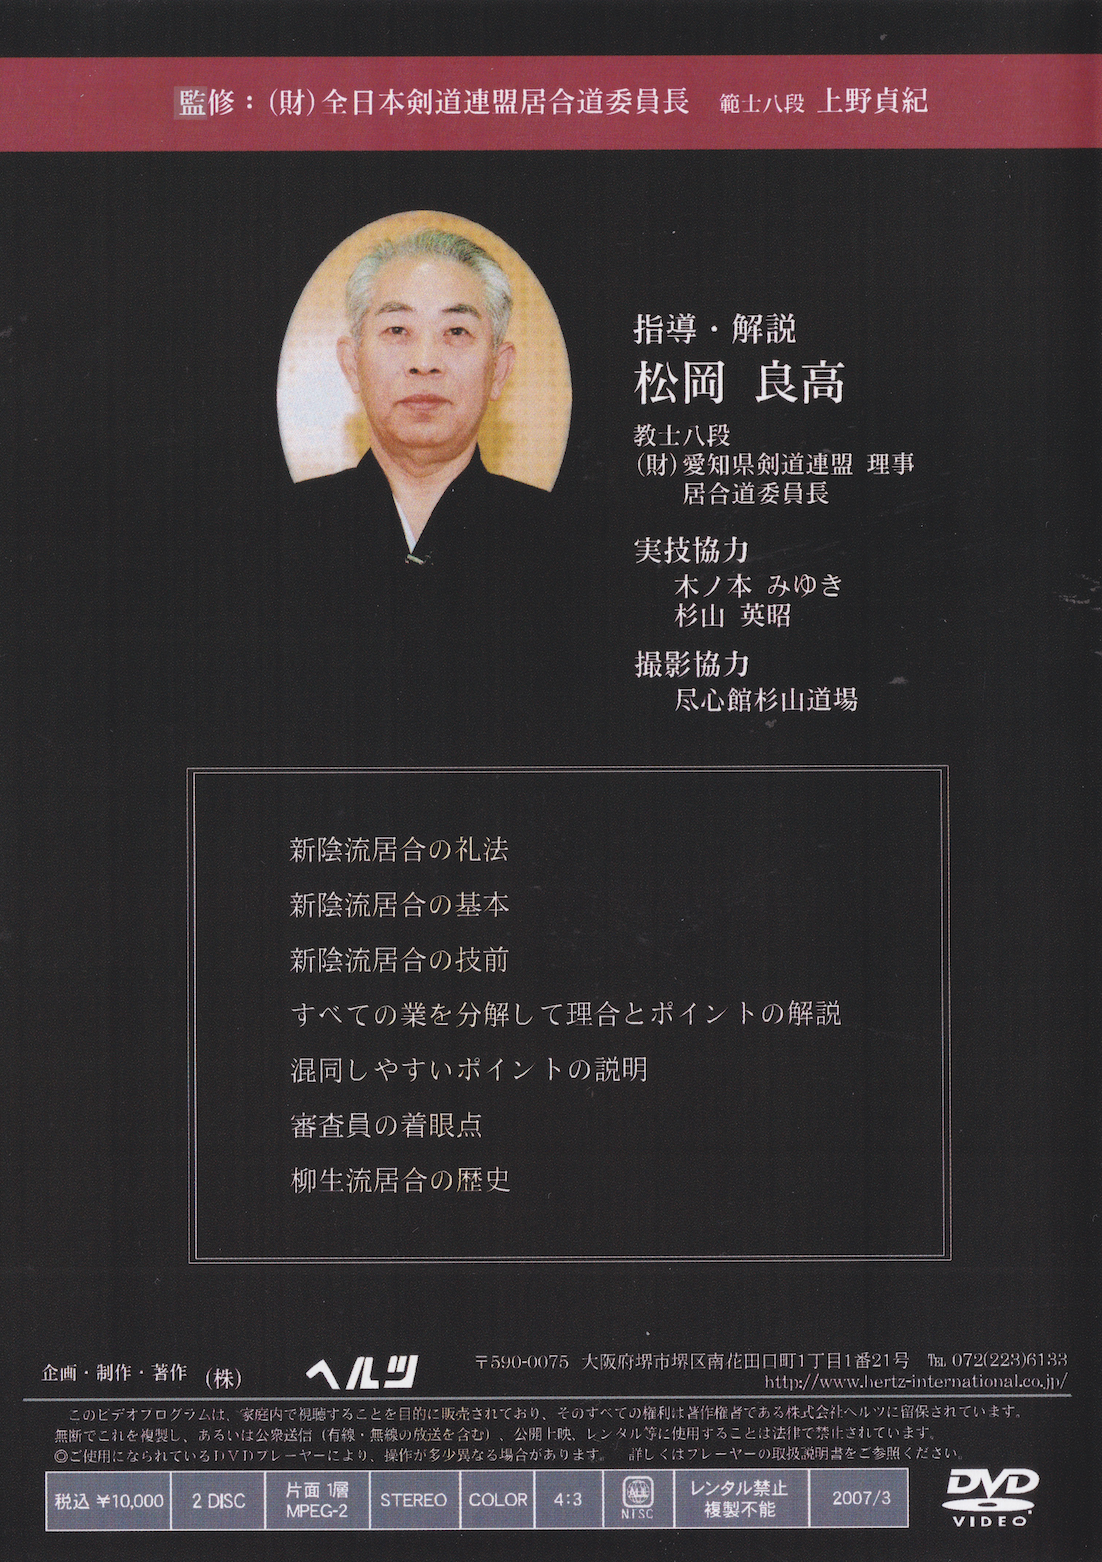 監修：（財）全日本剣道連盟居合道委員長　範士八段 上野貞紀
指導・解説
松岡 良高
教士八段
（財）愛知県剣道連盟 理事
居合道委員長
実技協力
木ノ本 みゆき
杉山 英昭
撮影協力
尽心館杉山道場
新陰流居合の礼法
新陰流居合の基本
新陰流居合の技前
すべての業を分解して理合とポイントの解説
混同しやすいポイントの説明
審査員の着眼点
柳生流居合の歴史
企画・制作・著作 （株） ヘルツ 〒590-0075 大阪府堺市堺区南花田口町1丁目1番21号 ℡ 072(223)6133
http://www.hertz-international.co.jp/
このビデオプログラムは、家庭内で視聴することを目的に販売されており、そのすべての権利は著作権者である株式会社ヘルツに留保されています。
無断でこれを複製し、あるいは公衆送信（有線・無線の放送を含む）、公開上映、レンタル等に使用することは法律で禁止されています。
◎ご使用になられているDVDプレーヤーにより、操作が多少異なる場合があります。 詳しくはプレーヤーの取扱説明書をご参照ください。
税込 ¥10,000 2 DISC 片面 1層 MPEG-2 STEREO COLOR 4:3 ALL NTSC レンタル禁止 複製不能 2007/3
DVD
VIDEO